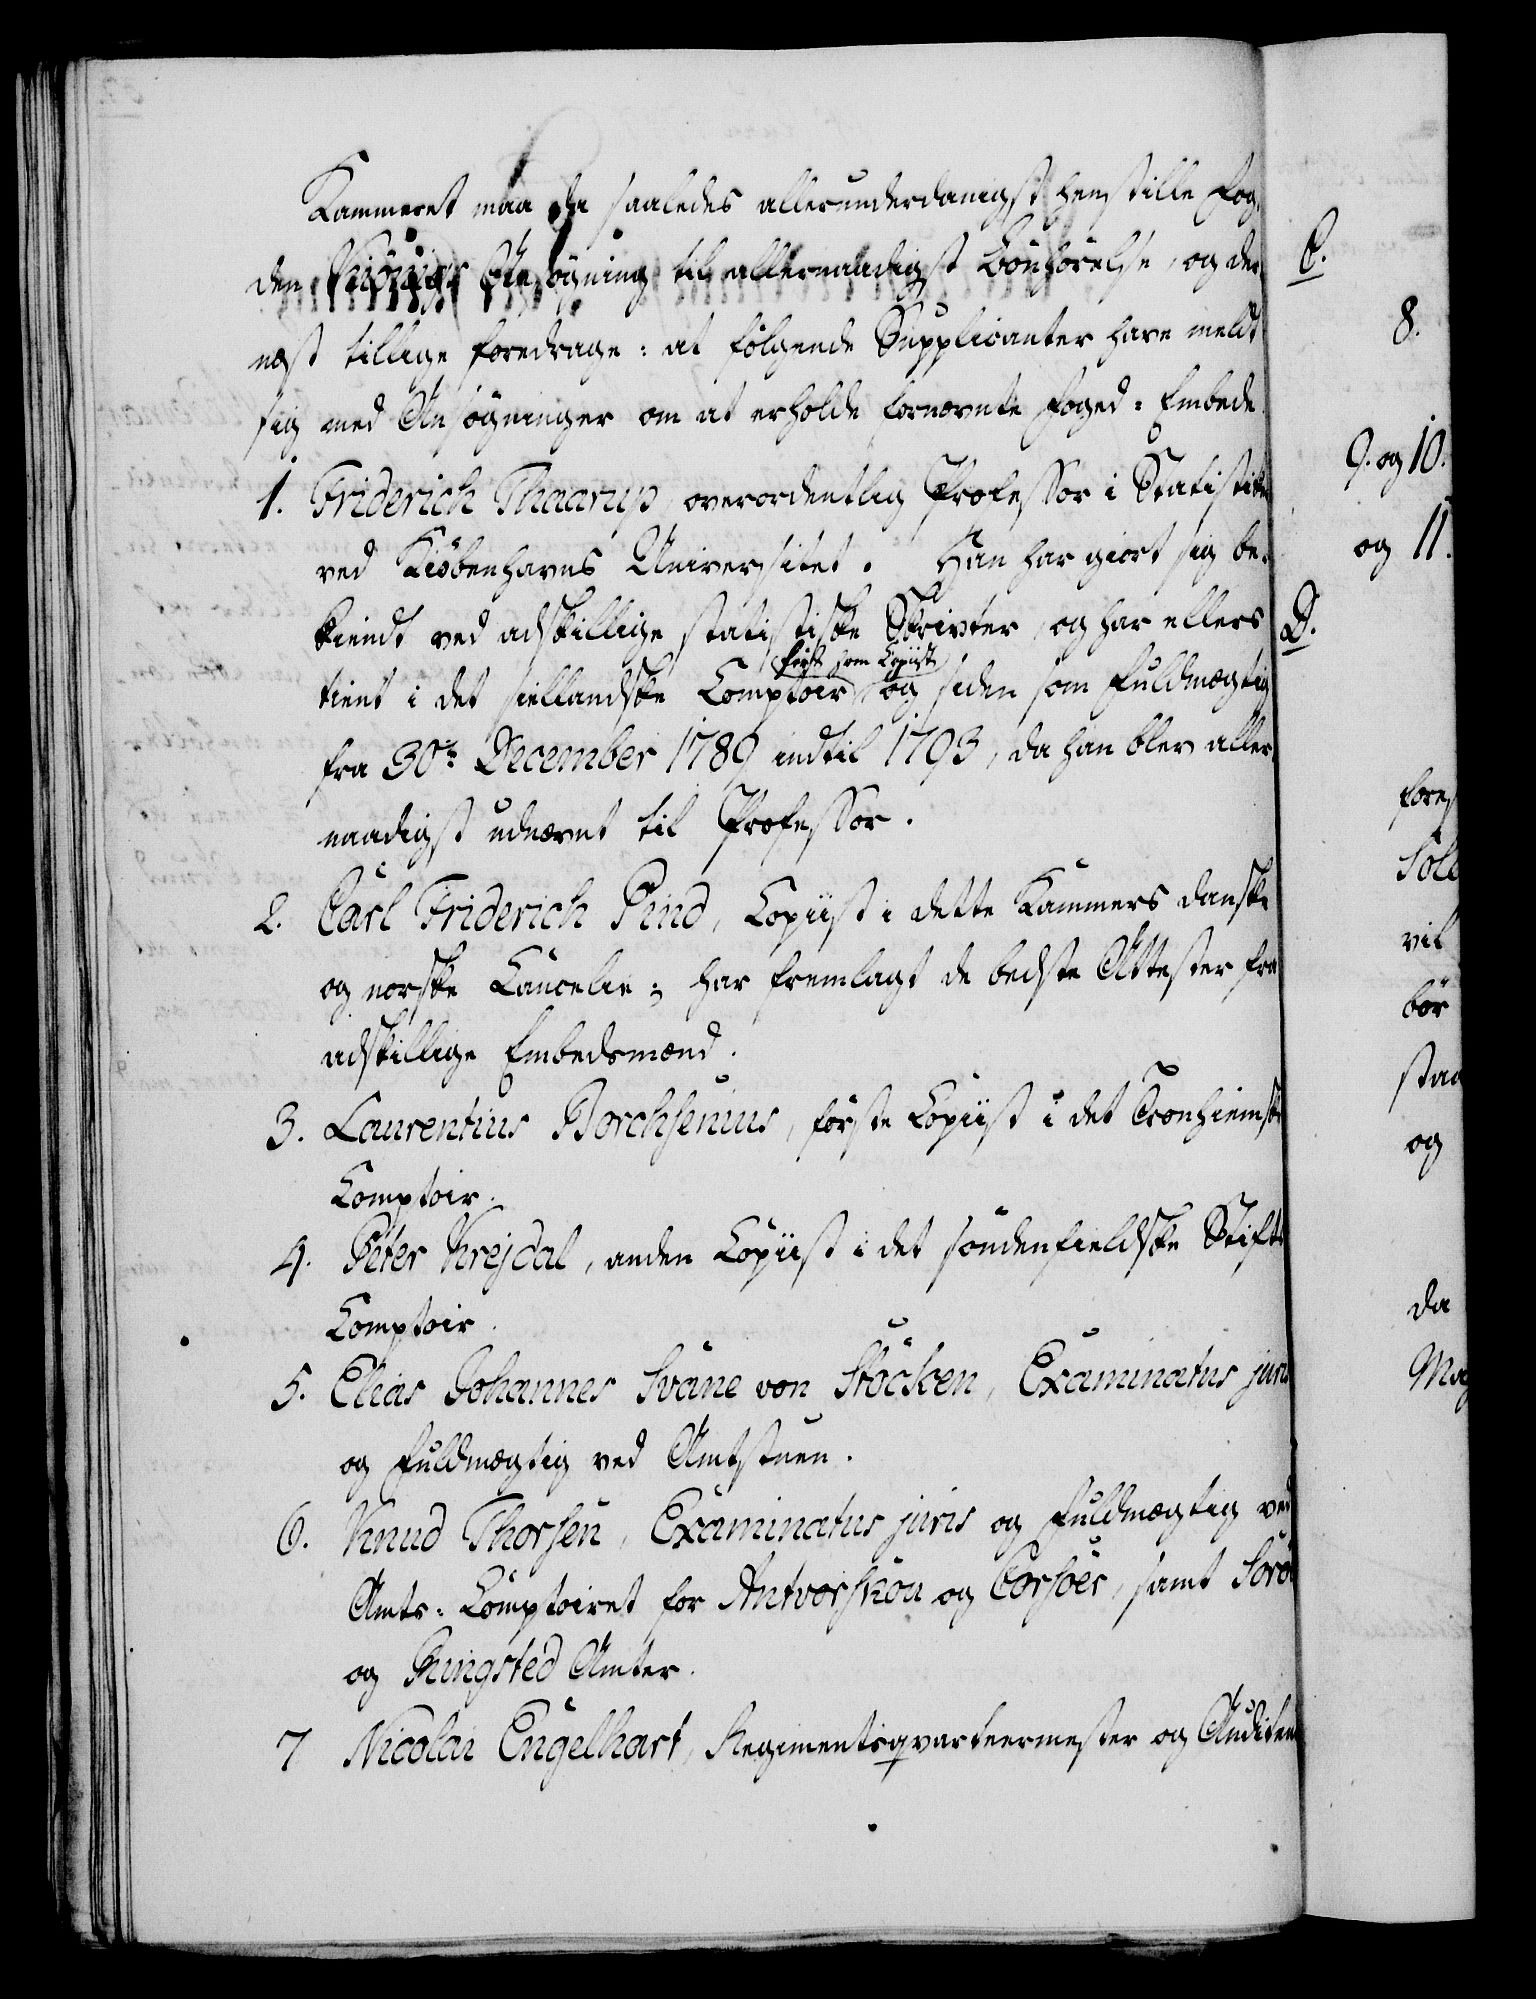 Kammeret maa da saaledes allerunderdanigst henstille Fog-
den Kiönigs Ansøgning til allernaadigst Bönhörelse, og der
næst tillige foredrage: at følgende Supplicanter have meldt
sig med Ansøgninger om at erholde fornævnte Foged-Embede
1. Friderich Thaarup, overordentlig Professor i Statistik
ved Kiøbenhavns Universitet. Han har giort sig be-
kiendt ved adskillige statistiske Skrivter, og har ellers
først som Copiist
tient i det siellandske Comptoir og siden som Fuldmægtig
fra 30te December 1789 indtil 1793, da han blev aller
naadigst udnævnt til Professor.
2. Carl Friderich Pind, Copiist i dette Kammers danske
og norske Cancelie; har fremlagt de bedste Attester fra
adskillige Embedsmænd.
3. Laurentius Borchsenius, förste Copiist i det Tronhiemske
Comptoir.
4. Peter Krejdal, anden Copiist i det söndenfieldske Stifts
Comptoir.
5. Elias Johannes Svane von Stöcken, Examinatus juris
og Fuldmægtig ved Amtstuen.
6. Knud Thorsen, Examinatus juris og Fuldmægtig ved
Amts-Comptoiret for Antvorskou og Corsöer, samt Sorö
og Ringsted Amter.
7 Nicolai Engelhart, Regimentsqvarteermester og Auditeur
C.
8.
9. og 10.
og 11.
D.
fores
Sole
vil
bör
staa
og
da
Mag